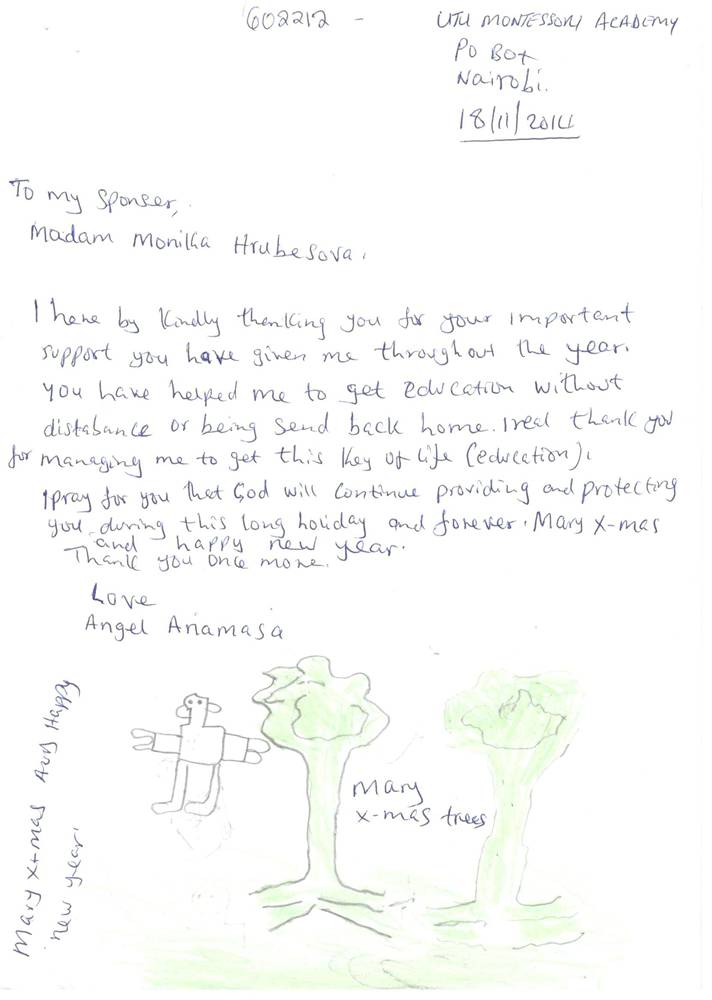 602212 -
UTU MONTESSORI ACADEMY
PO BOX
Nairobi.
18/11/2014
To my sponser,
Madam Monika Hrubesova.
I here by kindly thenking you for your important
support you have given me throughout the year.
you have helped me to get education without
distabance or being send back home. I real thank you
for managing me to get this key of life (education).
I pray for you that God will continue providing and protecting
you during this long holiday and forever. Mary X-mas
and happy new year.
Thank you once more.
Love
Angel Anamasa
Mary X-mas And Happy
new year.
Mary
x-mas trees